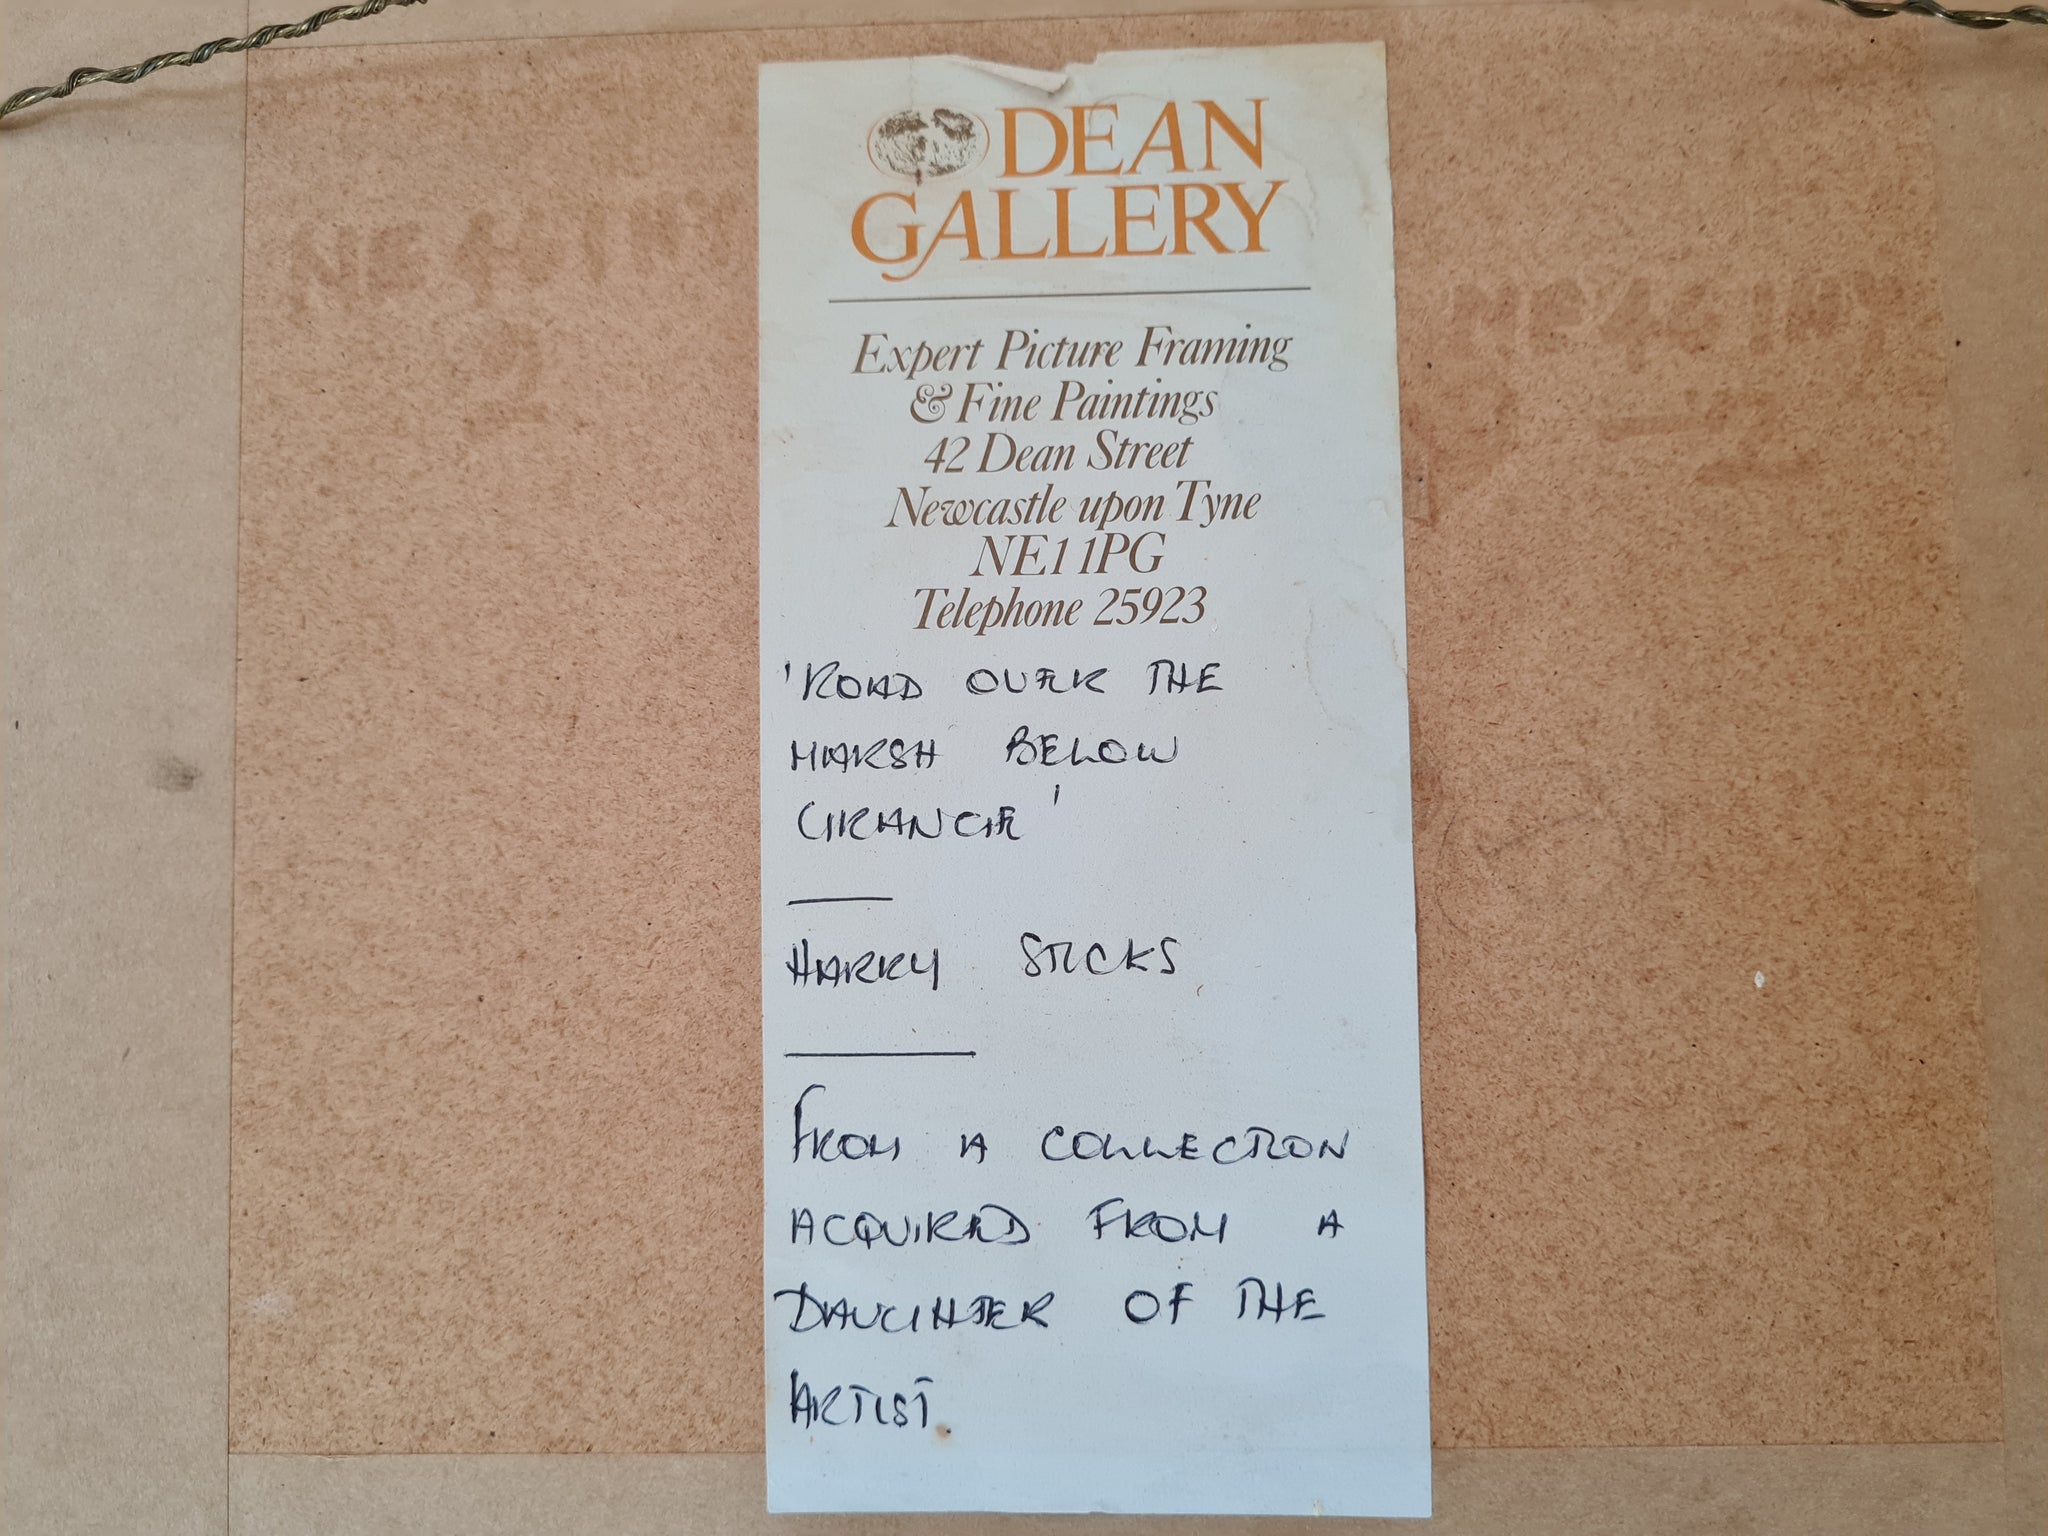 DEAN
GALLERY
Expert Picture Framing
& Fine Paintings
42 Dean Street
Newcastle upon Tyne
NE1 1PG
Telephone 25923
'ROAD OVER THE
MARSH BELOW
GRANGE'
HARRY STICKS
FROM A COLLECTION
ACQUIRED FROM A
DAUGHTER OF THE
ARTIST.